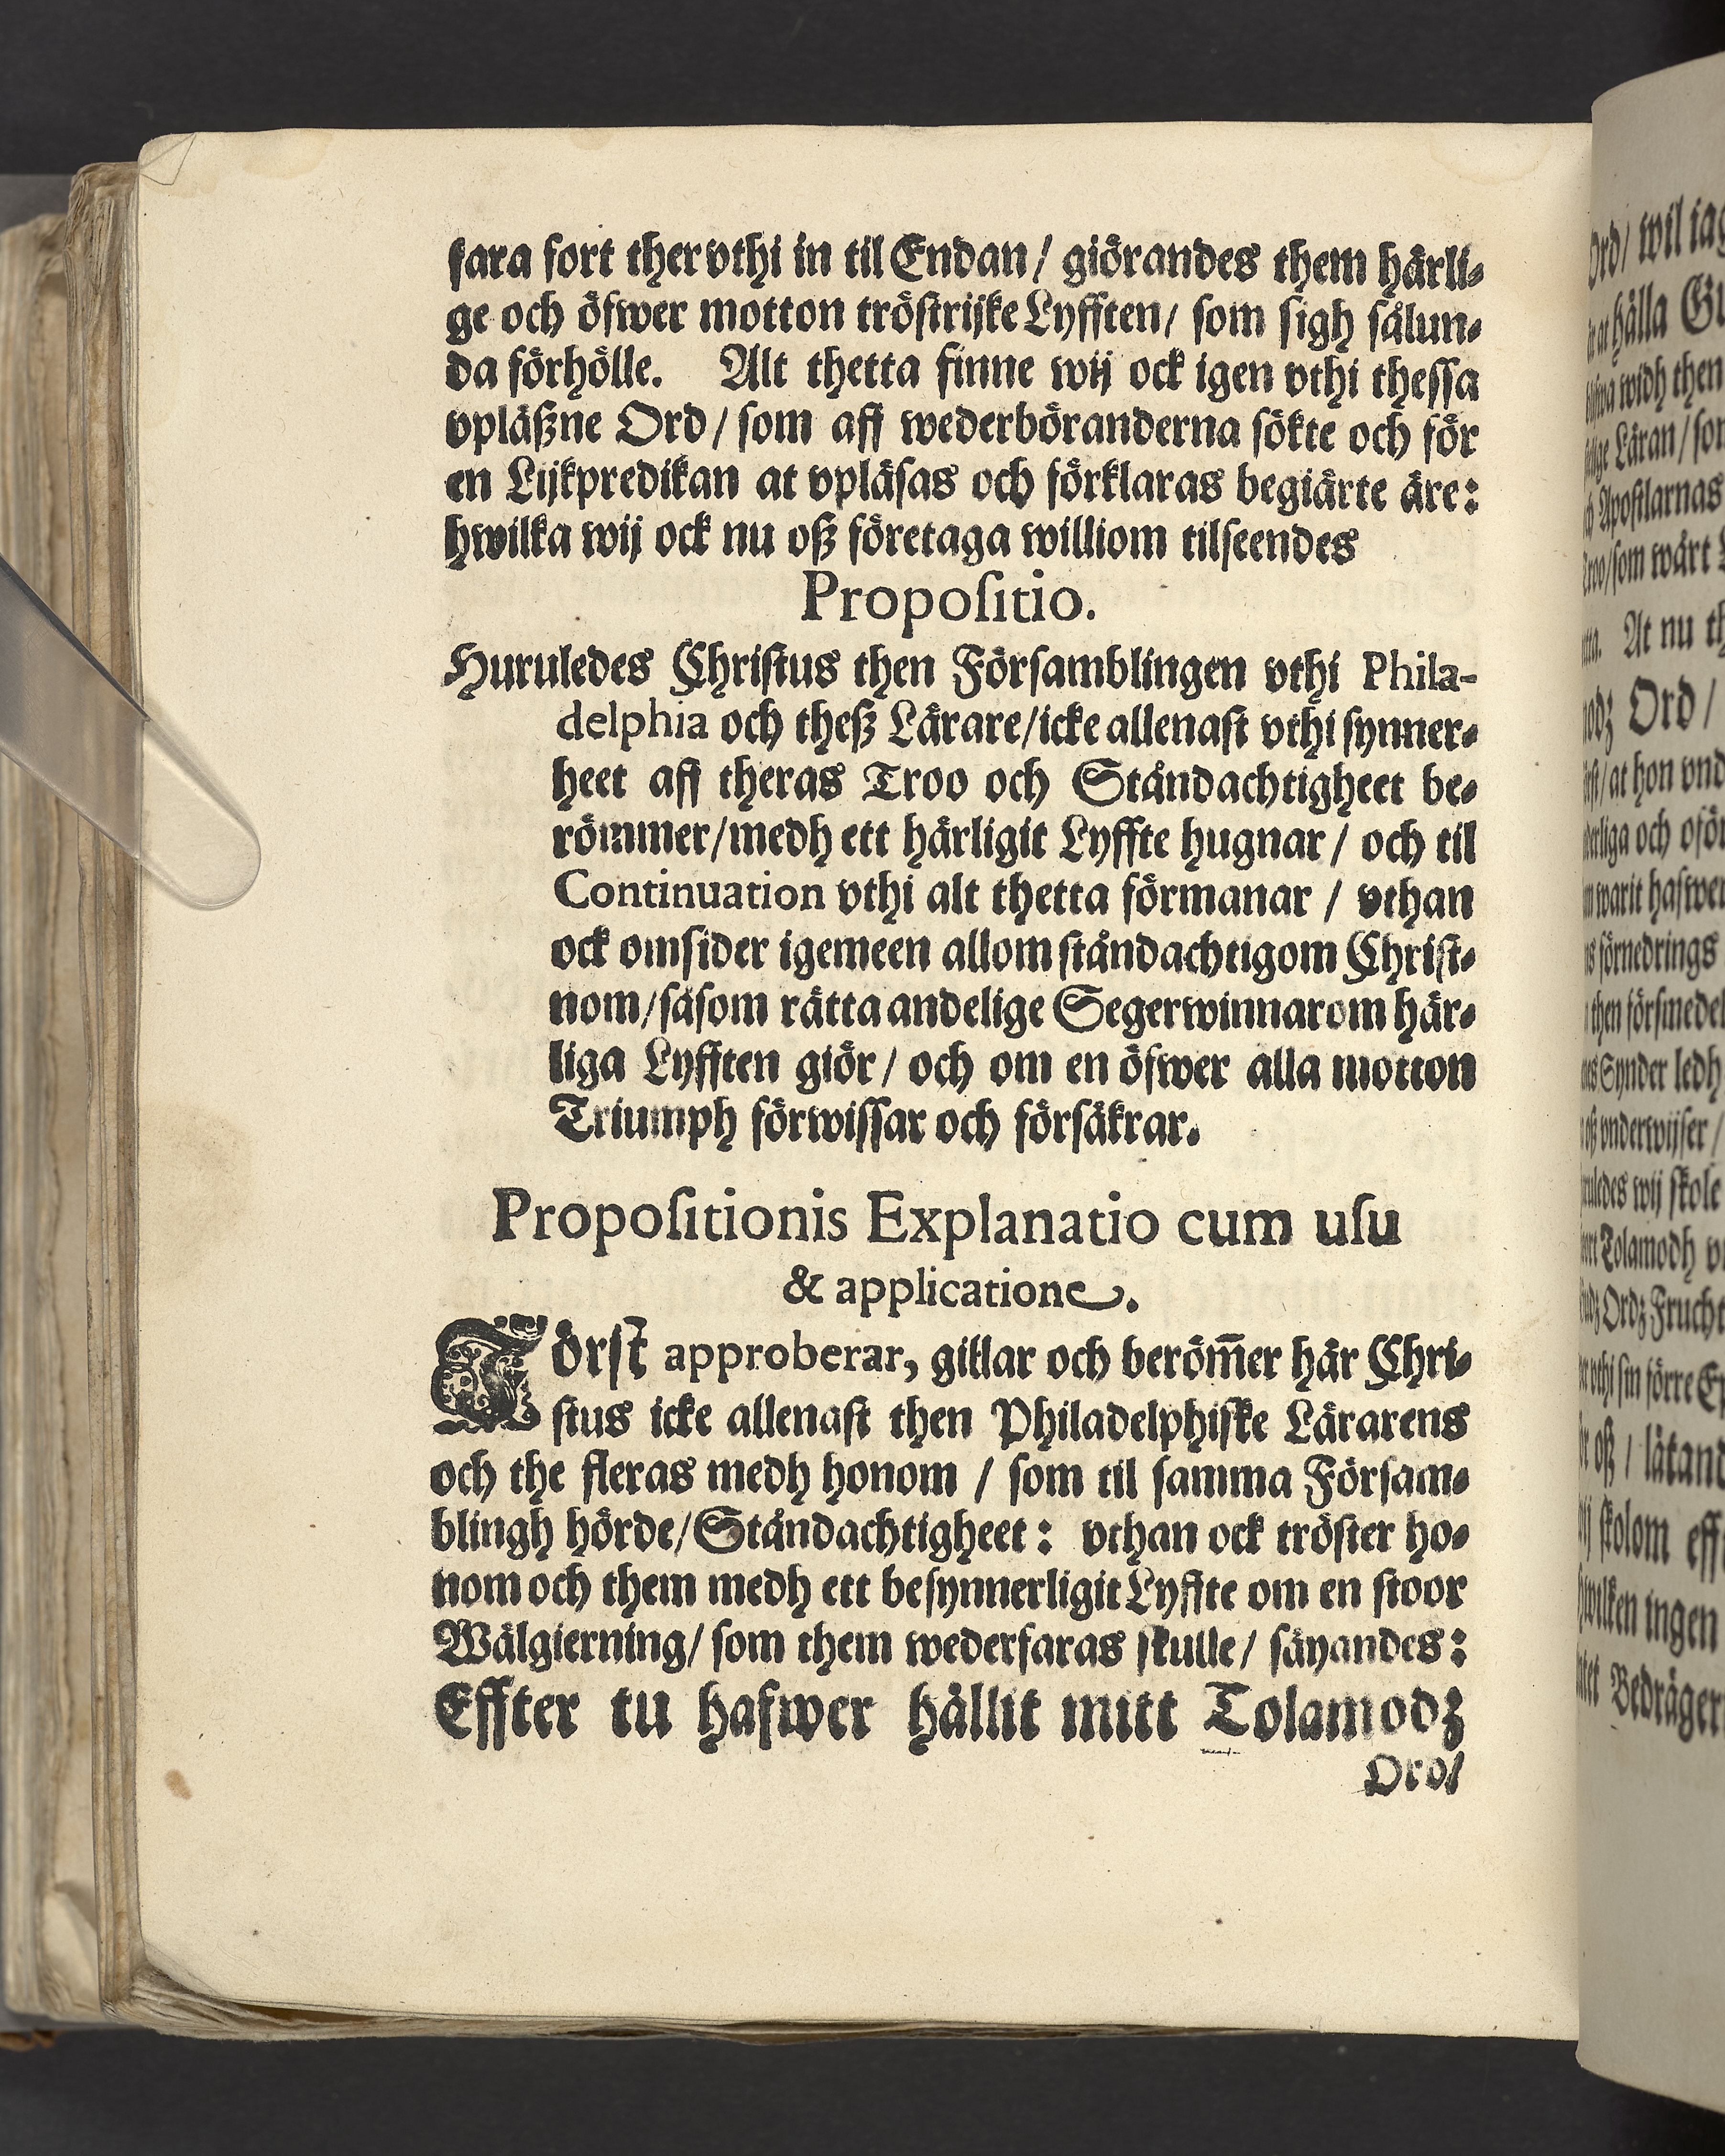 fara fort ther vthi in til Endan / giörandes them härli-
ge och öfwer motton tröstrijke Lyfften / som sigh sålun-
da förhölle. Alt thetta finne wij ock igen vthi thessa
vpläßne Ord / som aff wederböranderna sökte och för
en Lijkpredikan at vpläsas och förklaras begiärte äre:
hwilka wij ock nu oß företaga williom tilseendes
Propositio.
Huruledes Christus then Församblingen vthi Phila-
delphia och theß Lärare / icke allenast vthi synner-
heet aff theras Troo och Ståndachtigheet be-
römmer / medh ett härligit Lyffte hugnar / och til
Continuation vthi alt thetta förmanar / vthan
ock omsider igemeen allom ståndachtigom Christ-
nom / såsom rätta andelige Segerwinnarom här-
liga Lyfften giör / och om en öfwer alla motton
Triumph förwissar och försäkrar.
Propositionis Explanatio cum usu
& applicatione.
Först approberar, gillar och beröm̅er här Chri-
stus icke allenast then Philadelphiske Lärarens
och the fleras medh honom / som til samma Försam-
blingh hörde / Ståndachtigheet: vthan ock tröster ho-
nom och them medh ett besynnerligit Lyffte om en stoor
Wälgierning / som them wederfaras skulle / säyandes:
Effter tu hafwer hållit mitt Tolamodz
Ord/
Ord / wil iag
hålla
widh then
Läran / som
Apostlarnas
som wårt
At nu
Ord /
at hon
och
warit hafwer
förnedrings
then
Synder ledh
oß vnderwijser /
wij skole
Tolamodh
Ordz Frucht
vthi sin förre
oß / låtand
skolom
hwilken ingen